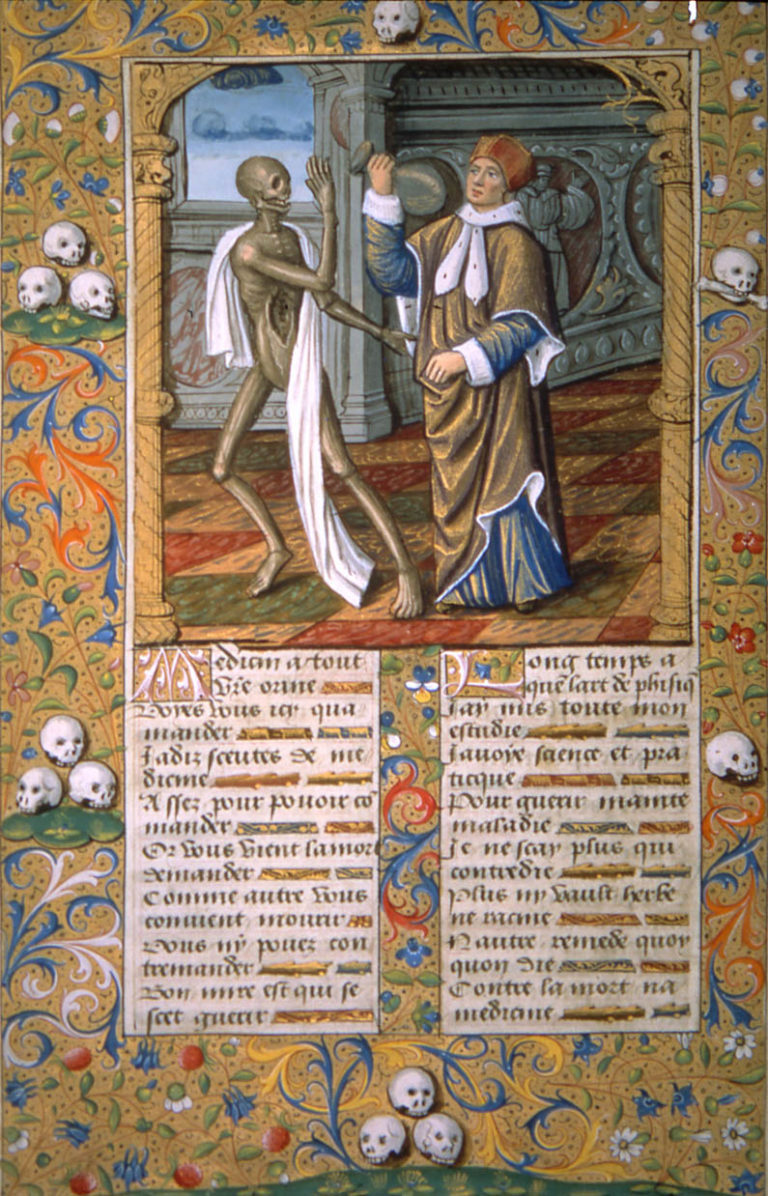 Medicin a tout
Vr̄e orine
Voyes vous icy qua
mander
Jadiz sceutes de me
dicine
Assez pour pouoir cō
mander
Or vous vient la mort
demander
Comme autre vous
conuient mourir
Vous ny pouez con
tremander
Bon mire est qui se
scet guerir
Long temps a
que lart de phisiq
Jay mis toute mon
estudie
Jauoye science et pra
ticque
Pour guerir mainte
maladie
Je ne scay plus qui
contredie
Plus ny vault herbe
ne racine
Nautre remede quoy
quon die
Contre la mort na
medicine